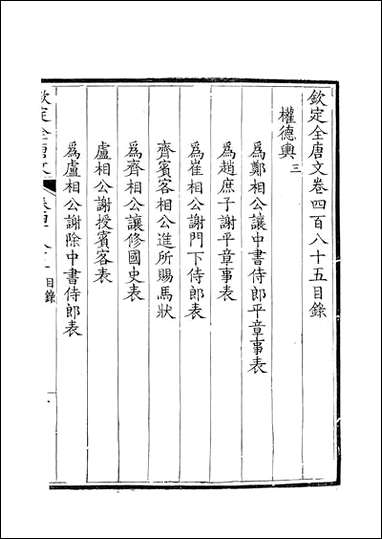 欽定全唐文卷四百八十五目錄
權德輿 三
為鄭相公讓中書侍郎平章事表
為趙庶子謝平章事表
為崔相公謝門下侍郎表
齊賓客相公進所賜馬狀
為齊相公讓修國史表
盧相公謝授賓客表
為盧相公謝除中書侍郎表
欽定全唐文
目錄